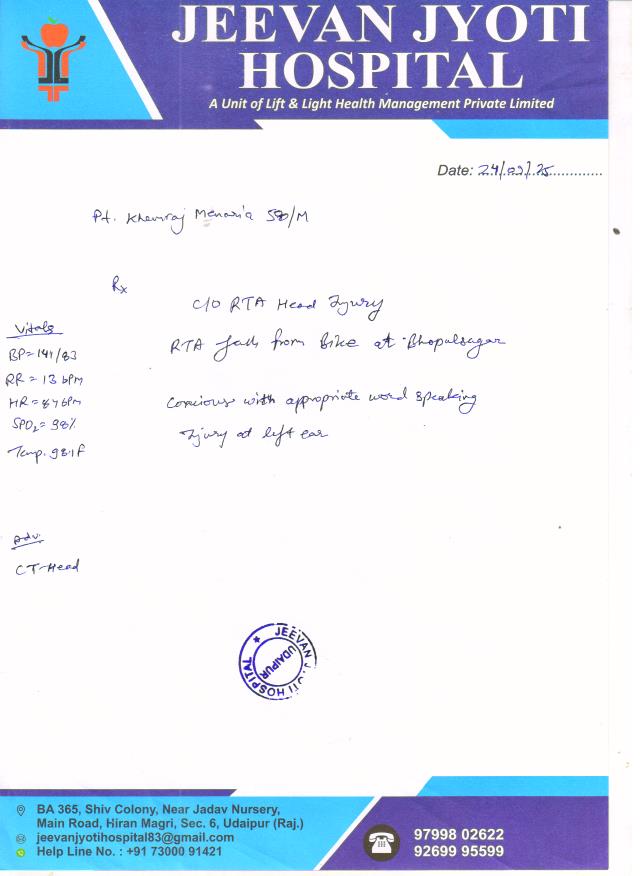 JEEVAN JYOTI
HOSPITAL
A Unit of Lift & Light Health Management Private Limited
Date: 24/09/25
Pt. Khemraj Menaria 58/M
Rx
C/o RTA Head Injury
RTA fall from Bike at Bhopalsagar
Concious with appropriate word speaking
Injury at left ear
Vitals
BP = 141/83
RR = 13 bpm
HR = 87 bpm
SPO2 = 98%
Temp. 98.1 F
Adv.
CT-Head
JEEVAN JYOTI HOSPITAL
UDAIPUR
BA 365, Shiv Colony, Near Jadav Nursery,
Main Road, Hiran Magri, Sec. 6, Udaipur (Raj.)
jeevanjyotihospital83@gmail.com
Help Line No. : +91 73000 91421
97998 02622
92699 95599